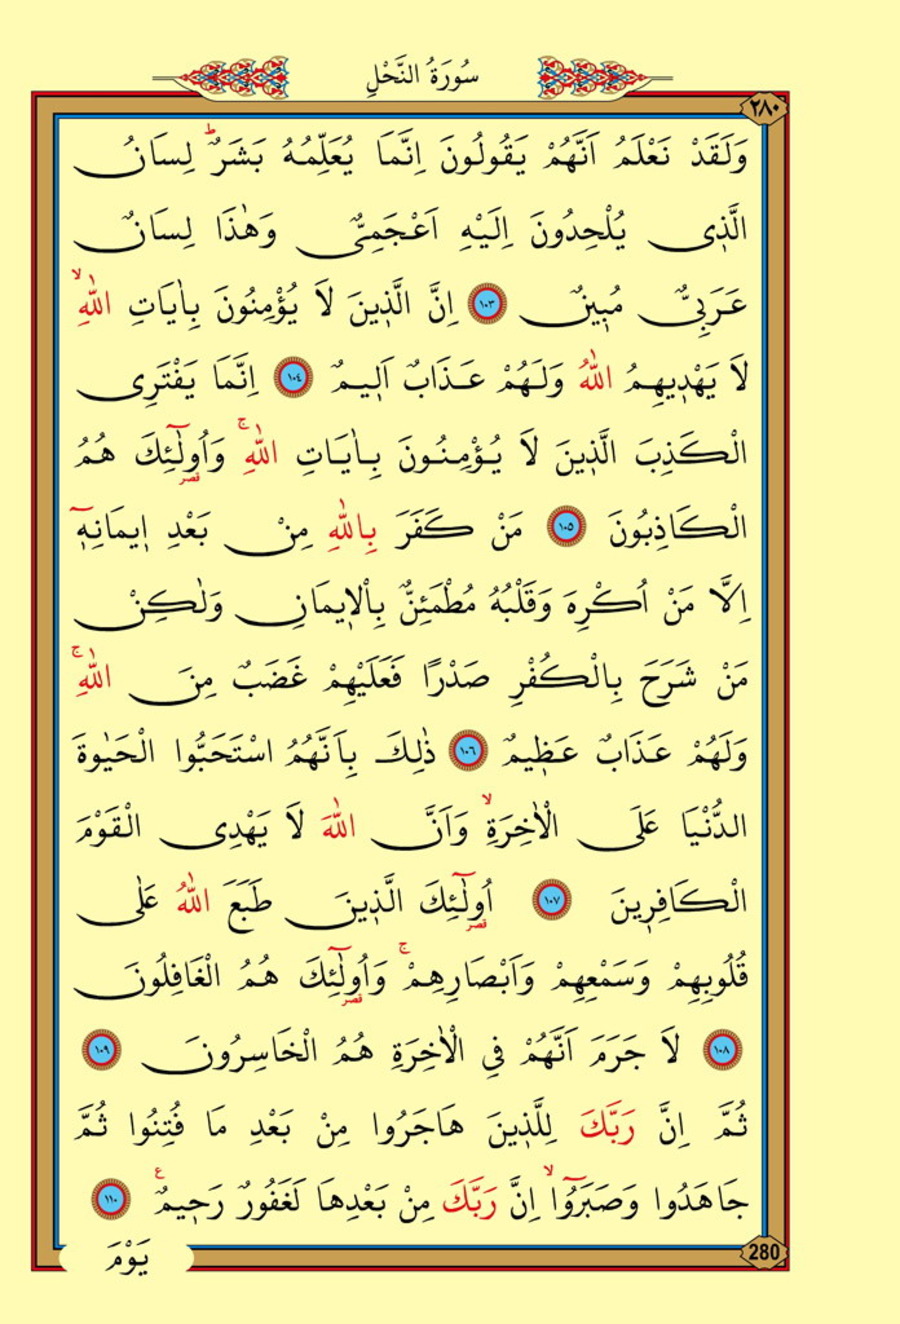 سُورَةُ النَّحْلِ
٢٨٠
وَلَقَدْ نَعْلَمُ اَنَّهُمْ يَقُولُونَ اِنَّمَا يُعَلِّمُهُ بَشَرٌۜ لِسَانُ
الَّذ۪ي يُلْحِدُونَ اِلَيْهِ اَعْجَمِيٌّ وَهٰذَا لِسَانٌ
عَرَبِيٌّ مُب۪ينٌ ﴿١٠٣﴾ اِنَّ الَّذ۪ينَ لَا يُؤْمِنُونَ بِاٰيَاتِ اللّٰهِۙ
لَا يَهْد۪يهِمُ اللّٰهُ وَلَهُمْ عَذَابٌ اَل۪يمٌ ﴿١٠٤﴾ اِنَّمَا يَفْتَرِي
الْكَذِبَ الَّذ۪ينَ لَا يُؤْمِنُونَ بِاٰيَاتِ اللّٰهِۚ وَاُو۬لٰٓئِكَ هُمُ
قصر
الْكَاذِبُونَ ﴿١٠٥﴾ مَنْ كَفَرَ بِاللّٰهِ مِنْ بَعْدِ ا۪يمَانِه۪ٓ
اِلَّا مَنْ اُكْرِهَ وَقَلْبُهُ مُطْمَئِنٌّ بِالْا۪يمَانِ وَلٰكِنْ
مَنْ شَرَحَ بِالْكُفْرِ صَدْرًا فَعَلَيْهِمْ غَضَبٌ مِنَ اللّٰهِۚ
وَلَهُمْ عَذَابٌ عَظ۪يمٌ ﴿١٠٦﴾ ذٰلِكَ بِاَنَّهُمُ اسْتَحَبُّوا الْحَيٰوةَ
الدُّنْيَا عَلَى الْاٰخِرَةِۙ وَاَنَّ اللّٰهَ لَا يَهْدِي الْقَوْمَ
الْكَافِر۪ينَ ﴿١٠٧﴾ اُو۬لٰٓئِكَ الَّذ۪ينَ طَبَعَ اللّٰهُ عَلٰى
قصر
قُلُوبِهِمْ وَسَمْعِهِمْ وَاَبْصَارِهِمْۚ وَاُو۬لٰٓئِكَ هُمُ الْغَافِلُونَ
قصر
﴿١٠٨﴾ لَا جَرَمَ اَنَّهُمْ فِي الْاٰخِرَةِ هُمُ الْخَاسِرُونَ ﴿١٠٩﴾
ثُمَّ اِنَّ رَبَّكَ لِلَّذ۪ينَ هَاجَرُوا مِنْ بَعْدِ مَا فُتِنُوا ثُمَّ
جَاهَدُوا وَصَبَرُٓواۙ اِنَّ رَبَّكَ مِنْ بَعْدِهَا لَغَفُورٌ رَح۪يمٌ ع ﴿١١٠﴾
280
يَوْمَ